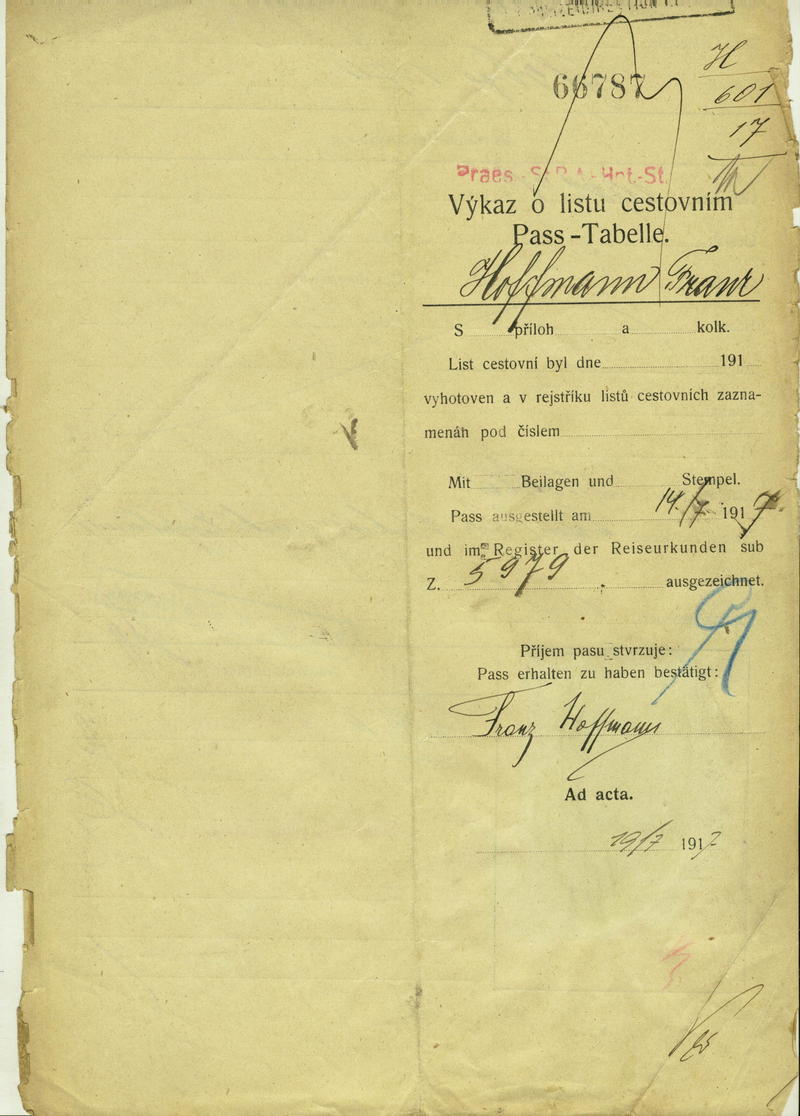 66787
H
601
17
Praes
Výkaz o listu cestovním
Pass-Tabelle.
Hoffmann Franz
S příloh a kolk.
List cestovní byl dne 191
vyhotoven a v rejstříku listů cestovních zazna-
menáh pod číslem
Mit Beilagen und Stempel.
Pass ausgestellt am 14/7 1917
und im Register der Reiseurkunden sub
Z. 5979 ausgezeichnet.
Příjem pasu stvrzuje:
Pass erhalten zu haben bestätigt:
Franz Hoffmann
Ad acta.
19/7 1917